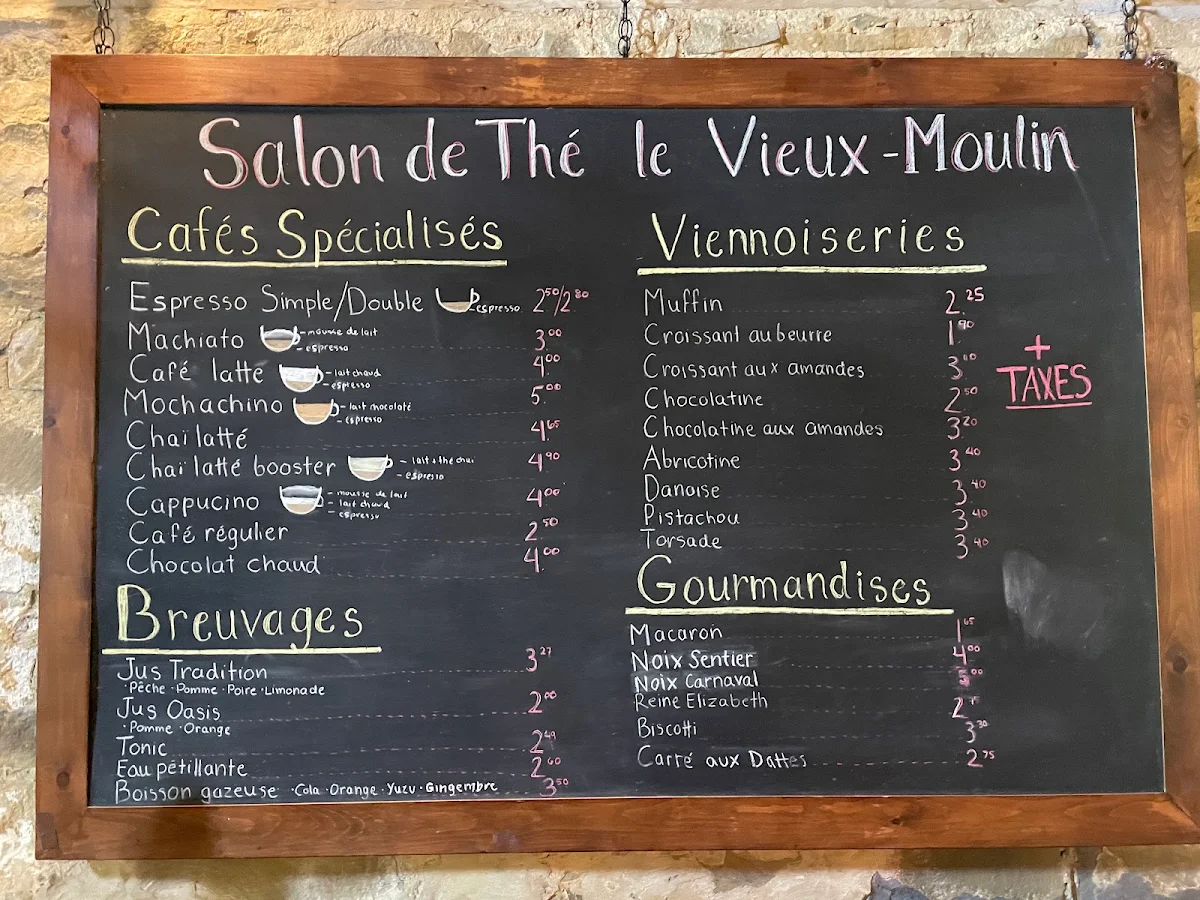 Salon de Thé le Vieux-Moulin
Cafés Spécialisés
Espresso Simple/Double espresso 2.50/2.80
Machiato 3.00
mousse de lait
espresso
Café latte 4.00
lait chaud
espresso
Mochachino 5.00
lait chocolaté
espresso
Chaï latté 4.65
Chaï latté booster 4.90
lait + thé chai
espresso
Cappucino 4.00
mousse de lait
lait chaud
espresso
Café régulier 2.50
Chocolat chaud 4.00
Breuvages
Jus Tradition 3.27
·Pêche ·Pomme ·Poire ·Limonade
Jus Oasis 2.00
·Pomme ·Orange
Tonic 2.49
Eau pétillante 2.60
Boisson gazeuse ·Cola ·Orange ·Yuzu ·Gingembre 3.50
Viennoiseries
Muffin 2.25
Croissant au beurre 1.90
Croissant aux amandes 3.10
Chocolatine 2.50
Chocolatine aux amandes 3.20
Abricotine 3.40
Danoise 3.40
Pistachou 3.40
Torsade 3.40
+
TAXES
Gourmandises
Macaron 1.65
Noix Sentier 4.00
Noix Carnaval 5.00
Reine Elizabeth 2.75
Biscotti 3.30
Carré aux Dattes 2.75